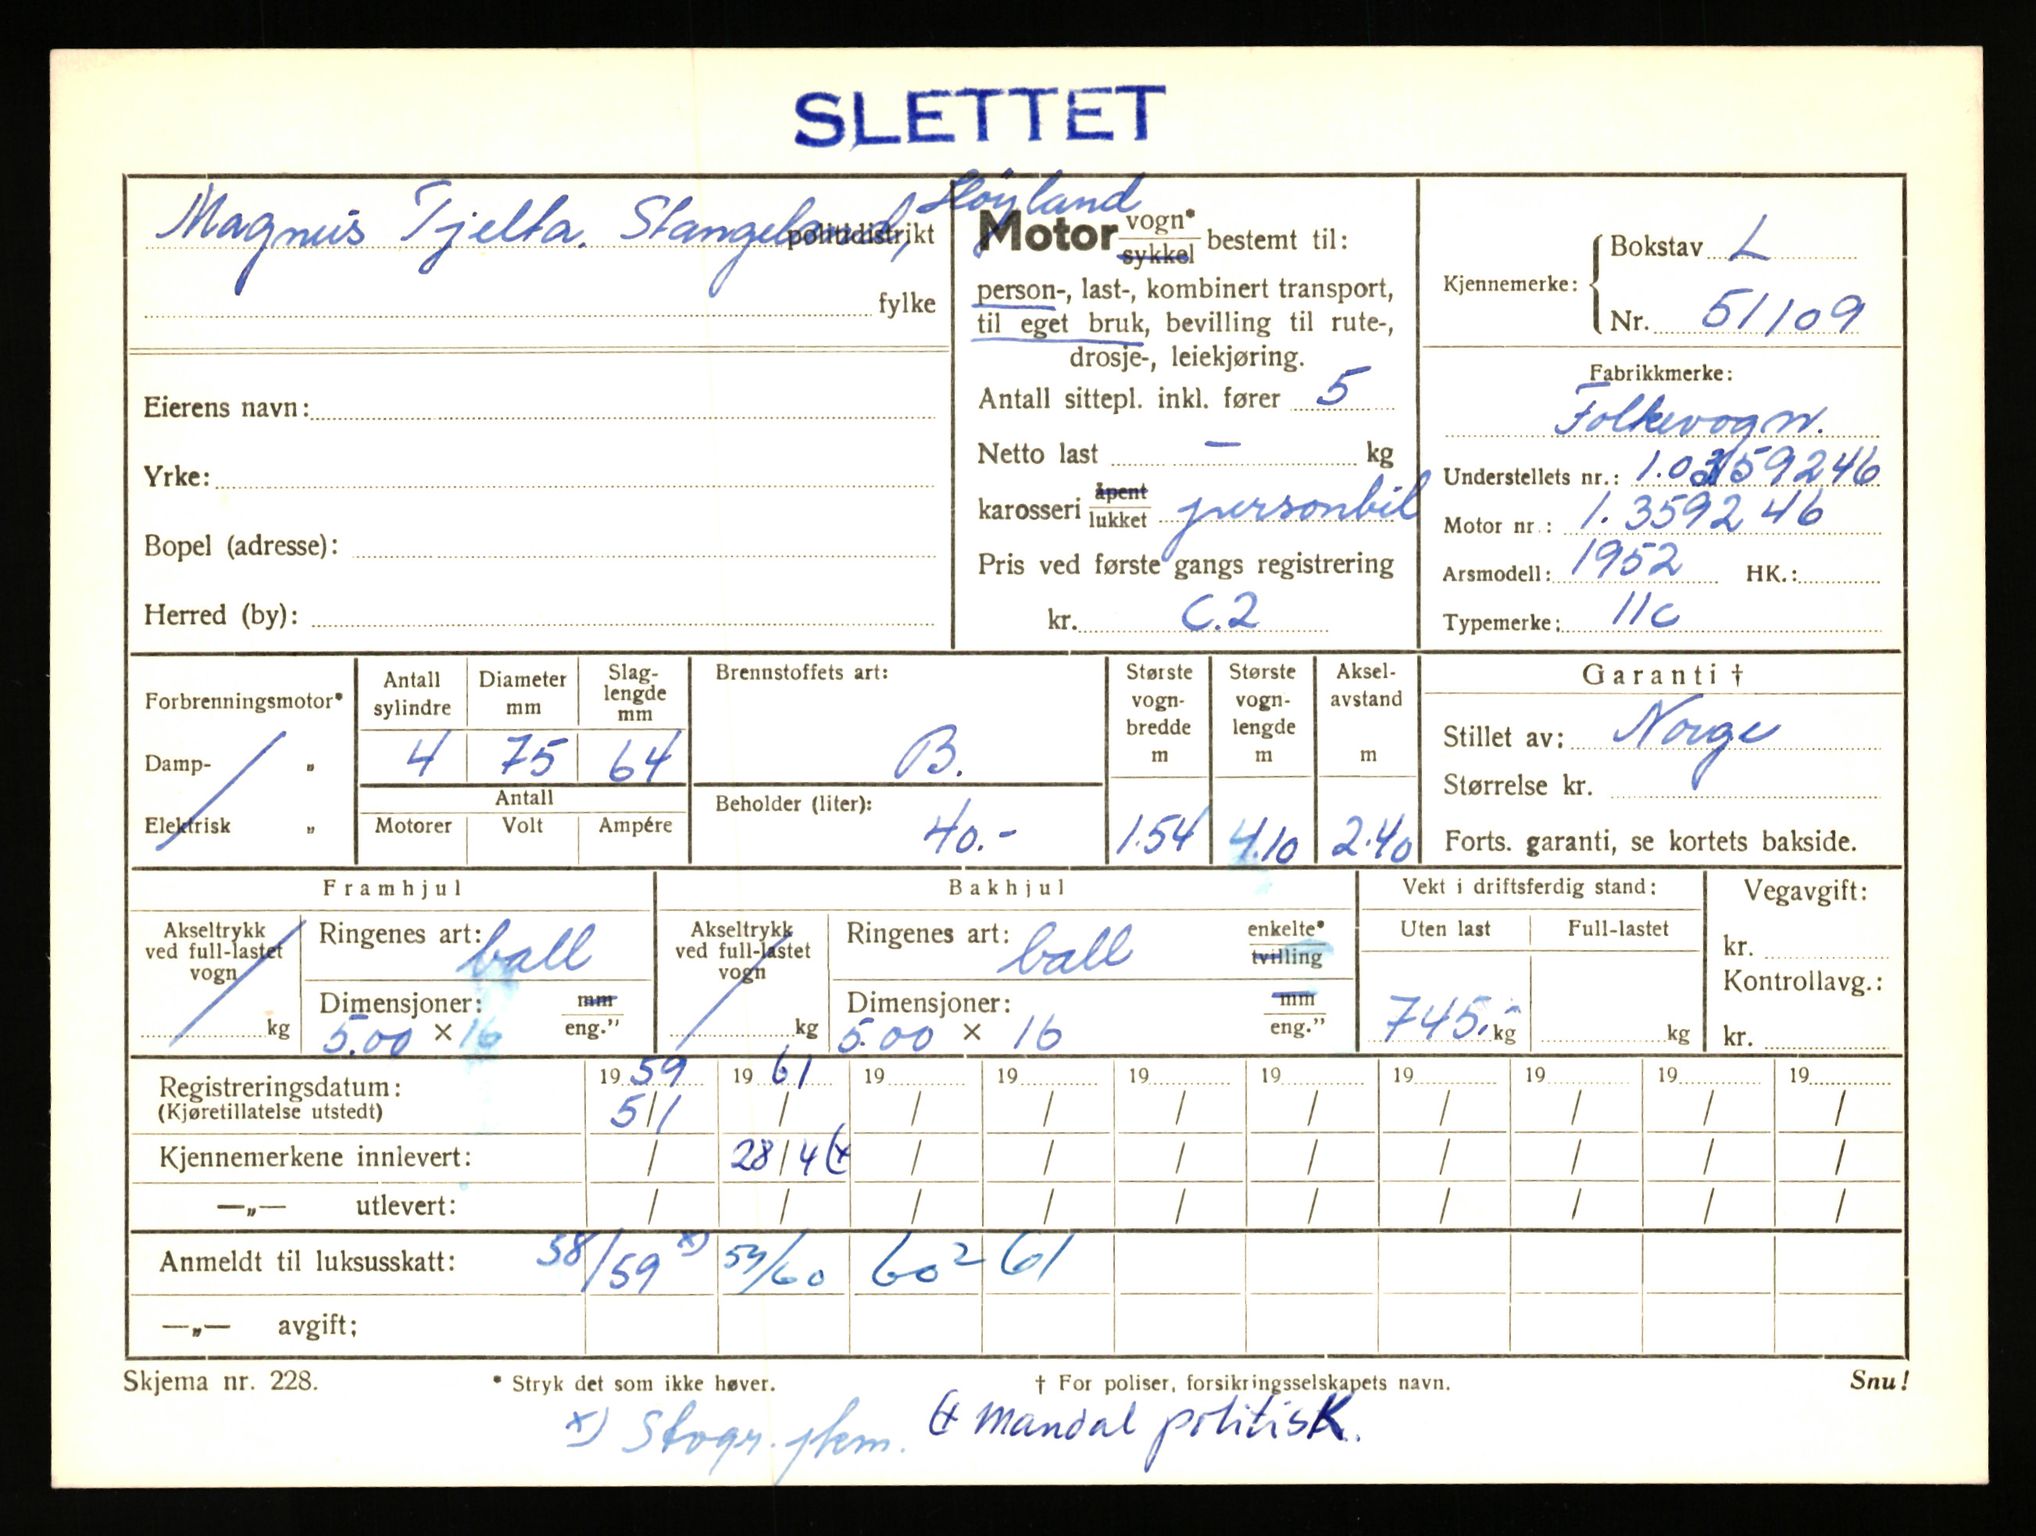 SLETTET
Magnus Tjelta, Stangeland, Høyland
politidistrikt
fylke
Eierens navn:
Yrke:
Bopel (adresse):
Herred (by):
Motor vogn* sykkel bestemt til:
person-, last-, kombinert transport,
til eget bruk, bevilling til rute-,
drosje-, leiekjøring.
Antall sittepl. inkl. fører 5
Netto last — kg
karosseri åpent lukket personbil
Pris ved første gangs registrering
kr. C.2
Kjennemerke: Bokstav L
Nr. 51109
Fabrikkmerke:
Folkevogn.
Understellets nr.: 1.0359246
Motor nr.: 1.359246
Arsmodell: 1952 HK.:
Typemerke: 11c
Forbrenningsmotor*
Damp- „
Elektrisk „
Antall sylindre Diameter mm Slag-lengde mm
4 75 64
Antall
Motorer Volt Ampére
Brennstoffets art:
B.
Beholder (liter):
40.-
Største vogn-bredde m
1.54
Største vogn-lengde m
4.10
Aksel-avstand m
2.40
Garanti †
Stillet av: Norge
Størrelse kr.
Forts. garanti, se kortets bakside.
Framhjul
Akseltrykk ved full-lastet vogn
kg
Ringenes art: ball
Dimensjoner: mm eng."
5.00 × 16
Bakhjul
Akseltrykk ved full-lastet vogn
kg
Ringenes art: ball enkelte* tvilling
Dimensjoner: mm eng."
5.00 × 16
Vekt i driftsferdig stand:
Uten last Full-lastet
745.- kg kg
Vegavgift:
kr.
Kontrollavg.:
kr.
Registreringsdatum: 1959 1961 19 19 19 19 19 19 19 19
(Kjøretillatelse utstedt) 5/1 / / / / / / / / /
Kjennemerkene innlevert: / 28/4 (x / / / / / / / /
—„— utlevert: / / / / / / / / / /
Anmeldt til luksusskatt: 58/59 x) 59/60 60² 61
—„— avgift;
Skjema nr. 228.
* Stryk det som ikke høver.
† For poliser, forsikringsselskapets navn.
Snu!
x) Stvgr. (x Mandal politisk.